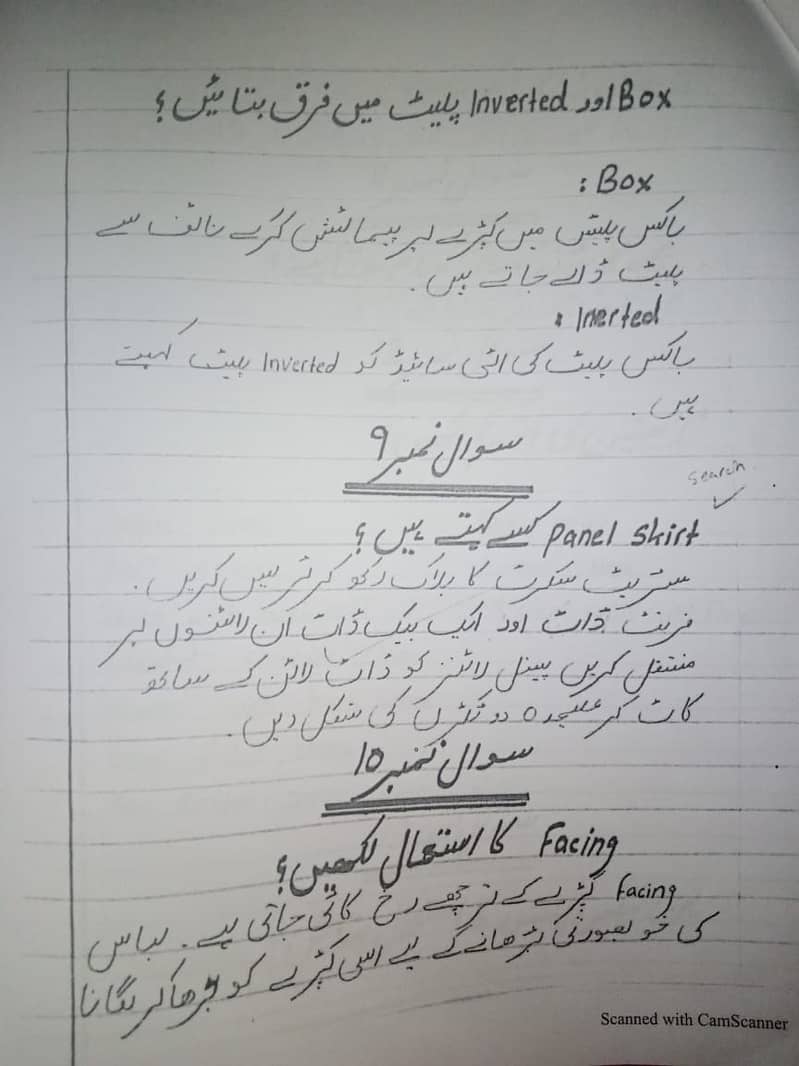 Box اور Inverted پلیٹ میں فرق بتائیں؟
Box :
باکس پلیٹس میں کپڑے پر پیمائش کرکے ناف سے
پلیٹ ڈالے جاتے ہیں۔
Inerted :
باکس پلیٹ کی الٹی سائیڈ کو Inverted پلیٹ کہتے
ہیں۔
سوال نمبر 9
search
Panel Skirt کسے کہتے ہیں؟
سٹریٹ سکرٹ کا بلاک رکھ کر ٹریس کریں۔
فرینٹ ڈاٹ اور ایک بیک ڈاٹ ان لائنوں پر
منتقل کریں پینل لائنز کو ڈاٹ لائن کے ساتھ
کاٹ کر علیحدہ دو ٹکڑں کی شکل دیں۔
سوال نمبر 10
Facing کا استعمال لکھیں؟
Facing کپڑے کے ترچھے رخ کاٹی جاتی ہے۔ لباس
کی خوبصورتی بڑھانے کے لیے اسی کپڑے کو بڑھا کر لگانا
Scanned with CamScanner